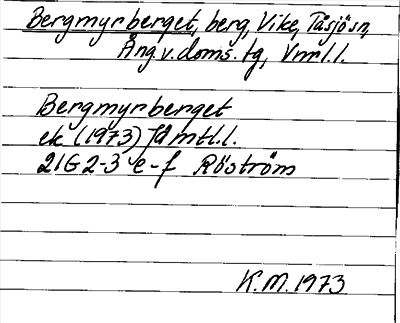 Bergmyrberget, berg, Vike, Tåsjösn,
Ång.v.doms.tg, Vnrl.l.
Bergmyrberget
ek (1973) Jämtl.l.
21G 2-3 e-f Röström
K.M. 1973